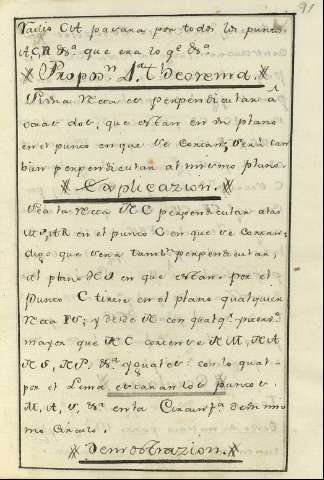 91
Radio CA pasara por todos los puntos
A, C, R &ª que era lo qe &ª
Propon 1ª theorema.
Si una recta es perpendicular a
otras dos, que estan en un plano
en el punto en que se cortan, será tam
bien perpendicular al mismo plano.
Explicazion.
Sea la recta AC perpendicular a las
en el punto C en que se cortan;
digo que será tambn perpendicular,
al plano en que estan. por el
Punto C tirese en el plano qualquier
recta y desde A con qualqr interv.
mayor que AC cortense AM, AA
AS, AP. &ª yguales: con lo qual
por el Lema estarán los puntos
M, A, S, &ª en la Circunfª de un mis
mo Circulo.
Demostrazion.